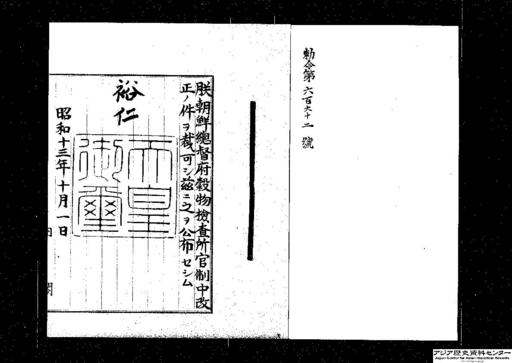 勅令第六百六十二號
朕朝鮮總督府穀物檢査所官制中改
正ノ件ヲ裁可シ茲ニ之ヲ公布セシム
裕仁
天皇
御璽
昭和十三年十月一日
内閣
アジア歴史資料センター
Japan Center for Asian Historical Records